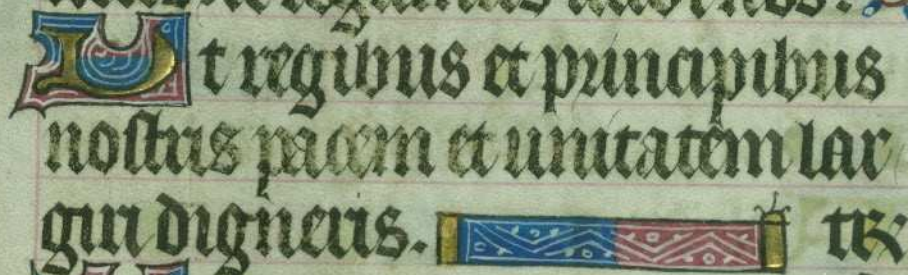 Ut regibus et principibus
nostris pacem et unitatem lar
giri digneris. te R